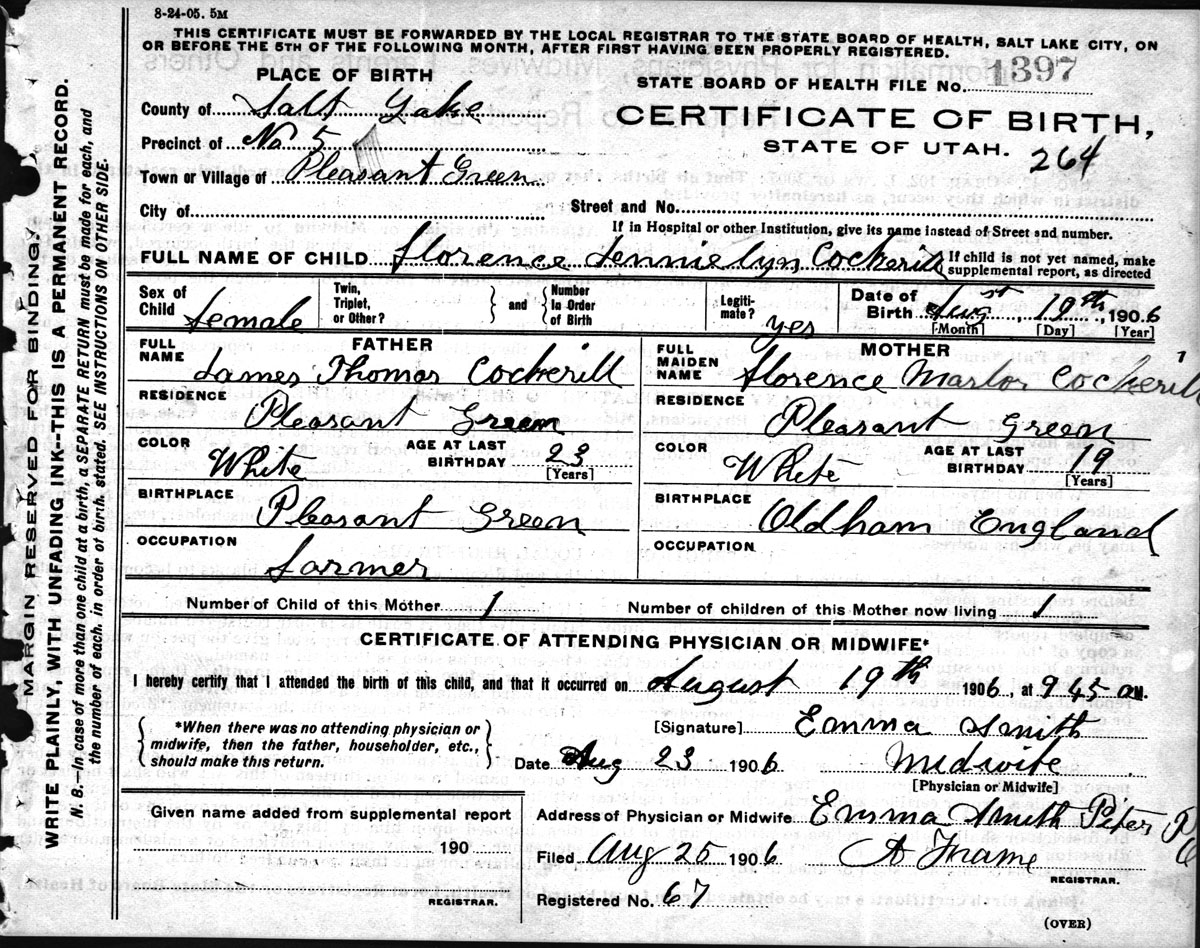 8-24-05. 5M
THIS CERTIFICATE MUST BE FORWARDED BY THE LOCAL REGISTRAR TO THE STATE BOARD OF HEALTH, SALT LAKE CITY, ON
OR BEFORE THE 5TH OF THE FOLLOWING MONTH, AFTER FIRST HAVING BEEN PROPERLY REGISTERED.
MARGIN RESERVED FOR BINDING.
WRITE PLAINLY, WITH UNFADING INK--THIS IS A PERMANENT RECORD.
N. B.--In case of more than one child at a birth, a SEPARATE RETURN must be made for each, and
the number of each, in order of birth, stated. SEE INSTRUCTIONS ON OTHER SIDE.
PLACE OF BIRTH
STATE BOARD OF HEALTH FILE No. 1397
County of Salt Lake
CERTIFICATE OF BIRTH,
Precinct of No 5
STATE OF UTAH. 264
Town or Village of Pleasant Green
City of Street and No.
If in Hospital or other Institution, give its name instead of Street and number.
FULL NAME OF CHILD Florence Jennielyn Cockerill If child is not yet named, make supplemental report, as directed
Sex of Child Female Twin, Triplet, or Other? and Number In Order of Birth Legitimate? yes Date of Birth August, 19th, 1906
[Month] [Day] [Year]
FATHER MOTHER
FULL NAME James Thomas Cockerill FULL MAIDEN NAME Florence Marlor Cockerill
RESIDENCE Pleasant Green RESIDENCE Pleasant Green
COLOR White AGE AT LAST BIRTHDAY 23 [Years] COLOR White AGE AT LAST BIRTHDAY 19 [Years]
BIRTHPLACE Pleasant Green BIRTHPLACE Oldham England
OCCUPATION Farmer OCCUPATION
Number of Child of this Mother 1 Number of children of this Mother now living 1
CERTIFICATE OF ATTENDING PHYSICIAN OR MIDWIFE*
I hereby certify that I attended the birth of this child, and that it occurred on August 19th 1906, at 9 45 a M.
*When there was no attending physician or midwife, then the father, householder, etc., should make this return.
[Signature] Emma Smith
Date Aug 23 1906 Midwife
[Physician or Midwife]
Given name added from supplemental report
190
REGISTRAR.
Address of Physician or Midwife Emma Smith Peter
Filed Aug 25 1906 A Frame
REGISTRAR.
Registered No. 67
(OVER)